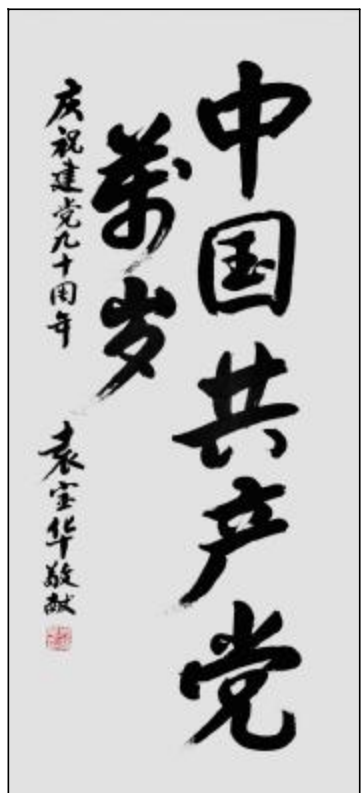 中国共产党
萬岁
庆祝建党九十周年
袁宝华敬献